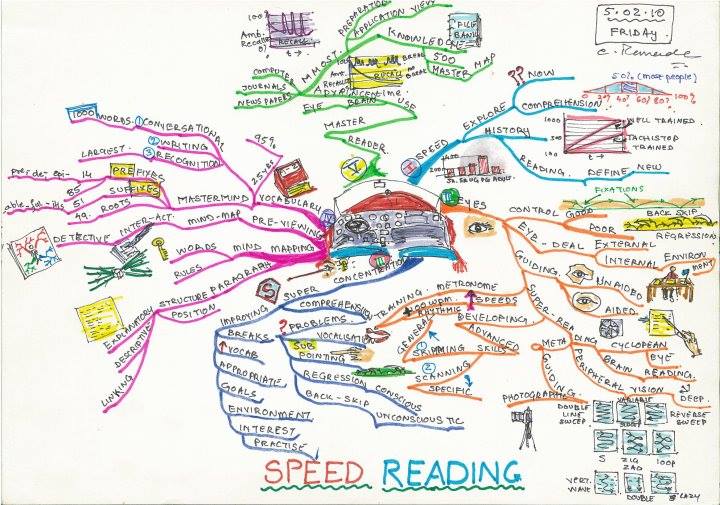 5.02.10
FRIDAY
100%
Amt. Recall
0%
RECALL
t →
PREPARATION
APPLICATION VIEW
KNOWLEDGE
FILE BANK
500
MASTER MAP
MMOST
COMPUTER
JOURNALS
NEWS PAPERS
100%
Amt. Recall
RECALL
BREAK
no Break
Advance time
EYE
BRAIN
USE
MASTER
READER
V
I
SPEED
EXPLORE
?? NOW
COMPREHENSION
HISTORY
READING. DEFINE NEW
50% (most people)
0 20% 40% 60% 80% 100%
WELL TRAINED.
TACHISTOP TRAINED
t →
1000 WORDS. ① CONVERSATIONAL
② WRITING
③ RECOGNITION
LARGEST.
95%
25 yrs
14 PREFIXES
85 SUFFIXES
able-ful-ths
51
49. ROOTS
MASTERMIND
VOCABULARY
IV
DETECTIVE
INTER-ACT.
MIND-MAP
PRE-VIEWING
WORDS
RULES
MIND MAPPING
PARAGRAPH
STRUCTURE
POSITION
EXPLANATORY
DESCRIPTIVE
LINKING
II
EYES
CONTROL
GOOD
POOR
FIXATIONS
BACK SKIP
REGRESSION
EYE-DEAL
EXTERNAL
INTERNAL
ENVIRONMENT
GUIDING.
UNAIDED
AIDED
SUPER-READING
CYCLOPEAN
EYE
BRAIN READING.
PERIPHERAL VISION
DEEP.
META GUIDING.
PHOTOGRAPHIC
DOUBLE LINE SWEEP.
VARIABLE SWEEP
REVERSE SWEEP
S
ZIG ZAG
LOOP
VERT. WAVE
DOUBLE
S
LAZY
III
CONCENTRATION
SUPER
COMPREHENSION
TRAINING
METRONOME
RHYTHMIC
SPEEDS
DEVELOPING.
ADVANCED
SKILLS
GENERAL
① SKIMMING
② SCANNING
SPECIFIC
IMPROVING
BREAKS
↑ VOCAB
APPROPRIATE
GOALS
ENVIRONMENT
INTEREST
PRACTISE
? PROBLEMS.
VOCALISATION
SUB
POINTING
REGRESSION CONSCIOUS
BACK-SKIP UNCONSCIOUS TIC
SPEED READING